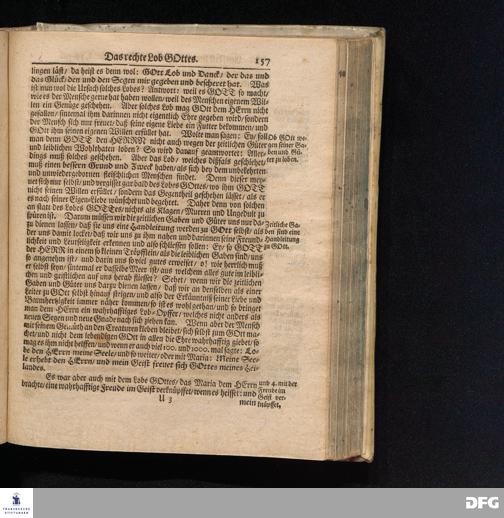 Das rechte Lob GOttes. 157
lingen läst/ da heist es denn wol: GOtt Lob und Danck/ der das und
das Glück/ den und den Segen mir gegeben und bescheret hat. Was
ist nun wol die Ursach solches Lobes? Antwort: weil es GOTT so macht/
wie es der Mensche gerne hat haben wollen/ weil des Menschen eigenem Wil-
len ein Genüge geschehen. Aber solches Lob mag GOtt dem HErrn nicht
gefallen/ sintemal ihm darinnen nicht eigentlich Ehre gegeben wird/ sondern
der Mensch sich nur freuet/ daß seine eigene Liebe ein Futter bekommen/ und
GOtt ihm seinen eigenen Willen erfüllet hat. Wolte man sagen: Ey/ soll
man dem GOTT den HERRN nicht auch wegen der zeitlichen Güter
und leiblichen Wohlthaten loben? So wird darauf geantwortet: Aller-
dings muß solches geschehen. Aber das Lob/ welches dißfals geschiehet/
muß einen bessern Grund und Zweck haben/ als sich bey dem unbekehrten
und unwiedergebornen fleischlichen Menschen findet. Denn dieser mey-
net sich nur selbst/ und vergisset gar bald des Lobes GOttes/ wo ihm GOTT
nicht seinen Willen erfüllet/ sondern das Gegentheil geschehen lässet/ als er
es nach seiner Eigen-Liebe wünschet und begehret. Daher denn von solchen
an statt des Lobes GOTTes/ nichts als Klagen/ Murren und Ungedult zu
spüren ist. Darum müssen wir die zeitlichen Gaben und Güter uns nur da-
zu dienen lassen/ daß sie uns eine Handleitung werden zu GOtt selbst/ als
der uns damit locket/ daß wir uns zu ihm nahen und darinnen seine Freund-
lichkeit und Leutseligkeit erkennen und also schliessen sollen: Ey/ so GOTT
der HERR in einem so kleinen Tröpfflein/ als die leiblichen Gaben sind/ uns
so angenehm ist/ und darin uns so viel gutes erweiset/ o! wie herrlich muß
er selbst seyn/ sintemal er dasselbe Meer ist/ aus welchem alles gute im leibli-
chen und geistlichen auf uns herab fliesset? Sehet/ wenn wir die zeitlichen
Gaben und Güter uns darzu dienen lassen/ daß wir an denselben als einer
Leiter zu GOtt selbst hinauf steigen/ und also der Erkäntniß seiner Liebe und
Barmhertzigkeit immer näher kommen/ so ist es wohl gethan/ und so bringet
man dem HErrn ein wahrhafftiges Lob-Opffer/ welches nicht anders als
neuen Segen und neue Gnade nach sich ziehen kan. Wenn aber der Mensch
mit seinem Gemüth an den Creaturen kleben bleibet/ sich selbst zum GOtt ma-
chet/ und nicht dem lebendigen GOtt in allen die Ehre wahrhafftig giebet/ so
mag es ihm nicht helffen/ und wenn er auch viel 100. und 1000. mal sagte: Lo-
be den HErrn meine Seele/ und so weiter/ oder mit Maria: Meine See-
le erhebt den HErrn/ und mein Geist freuet sich GOttes meines Hei-
landes.
Es war aber auch mit dem Lobs GOttes/ das Maria dem HErrn
brachte/ eine wahrhafftige Freude im Geist verknüpffet/ wenn es heisset: und
U 3 mein
Ob GOtt we-
gen seiner Ga-
ben und Gü-
ter zu loben.
Zeitliche Ga-
ben sind eine
Handleitung
zu GOtt.
und 4. mit der
Freude im
Geist ver-
knüpffet,
FRANCKESCHE
STIFTUNGEN
DFG